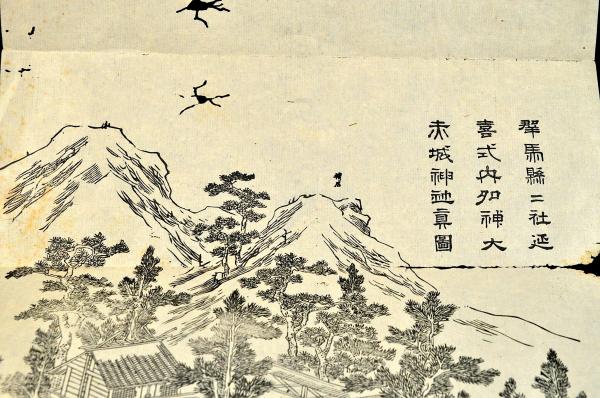 群馬縣二社延
喜式内名神大
赤城神社眞圖